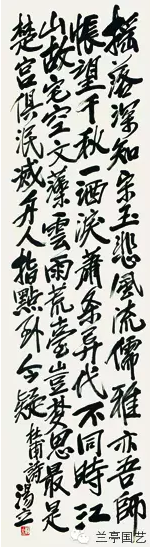 摇落深知宋玉悲風流儒雅亦吾師
悵望千秋一洒淚蕭条异代不同時江
山故宅空文藻雲雨荒臺豈梦思最是
楚宮俱泯滅舟人指點到今疑 杜甫詩 湯
兰亭国艺